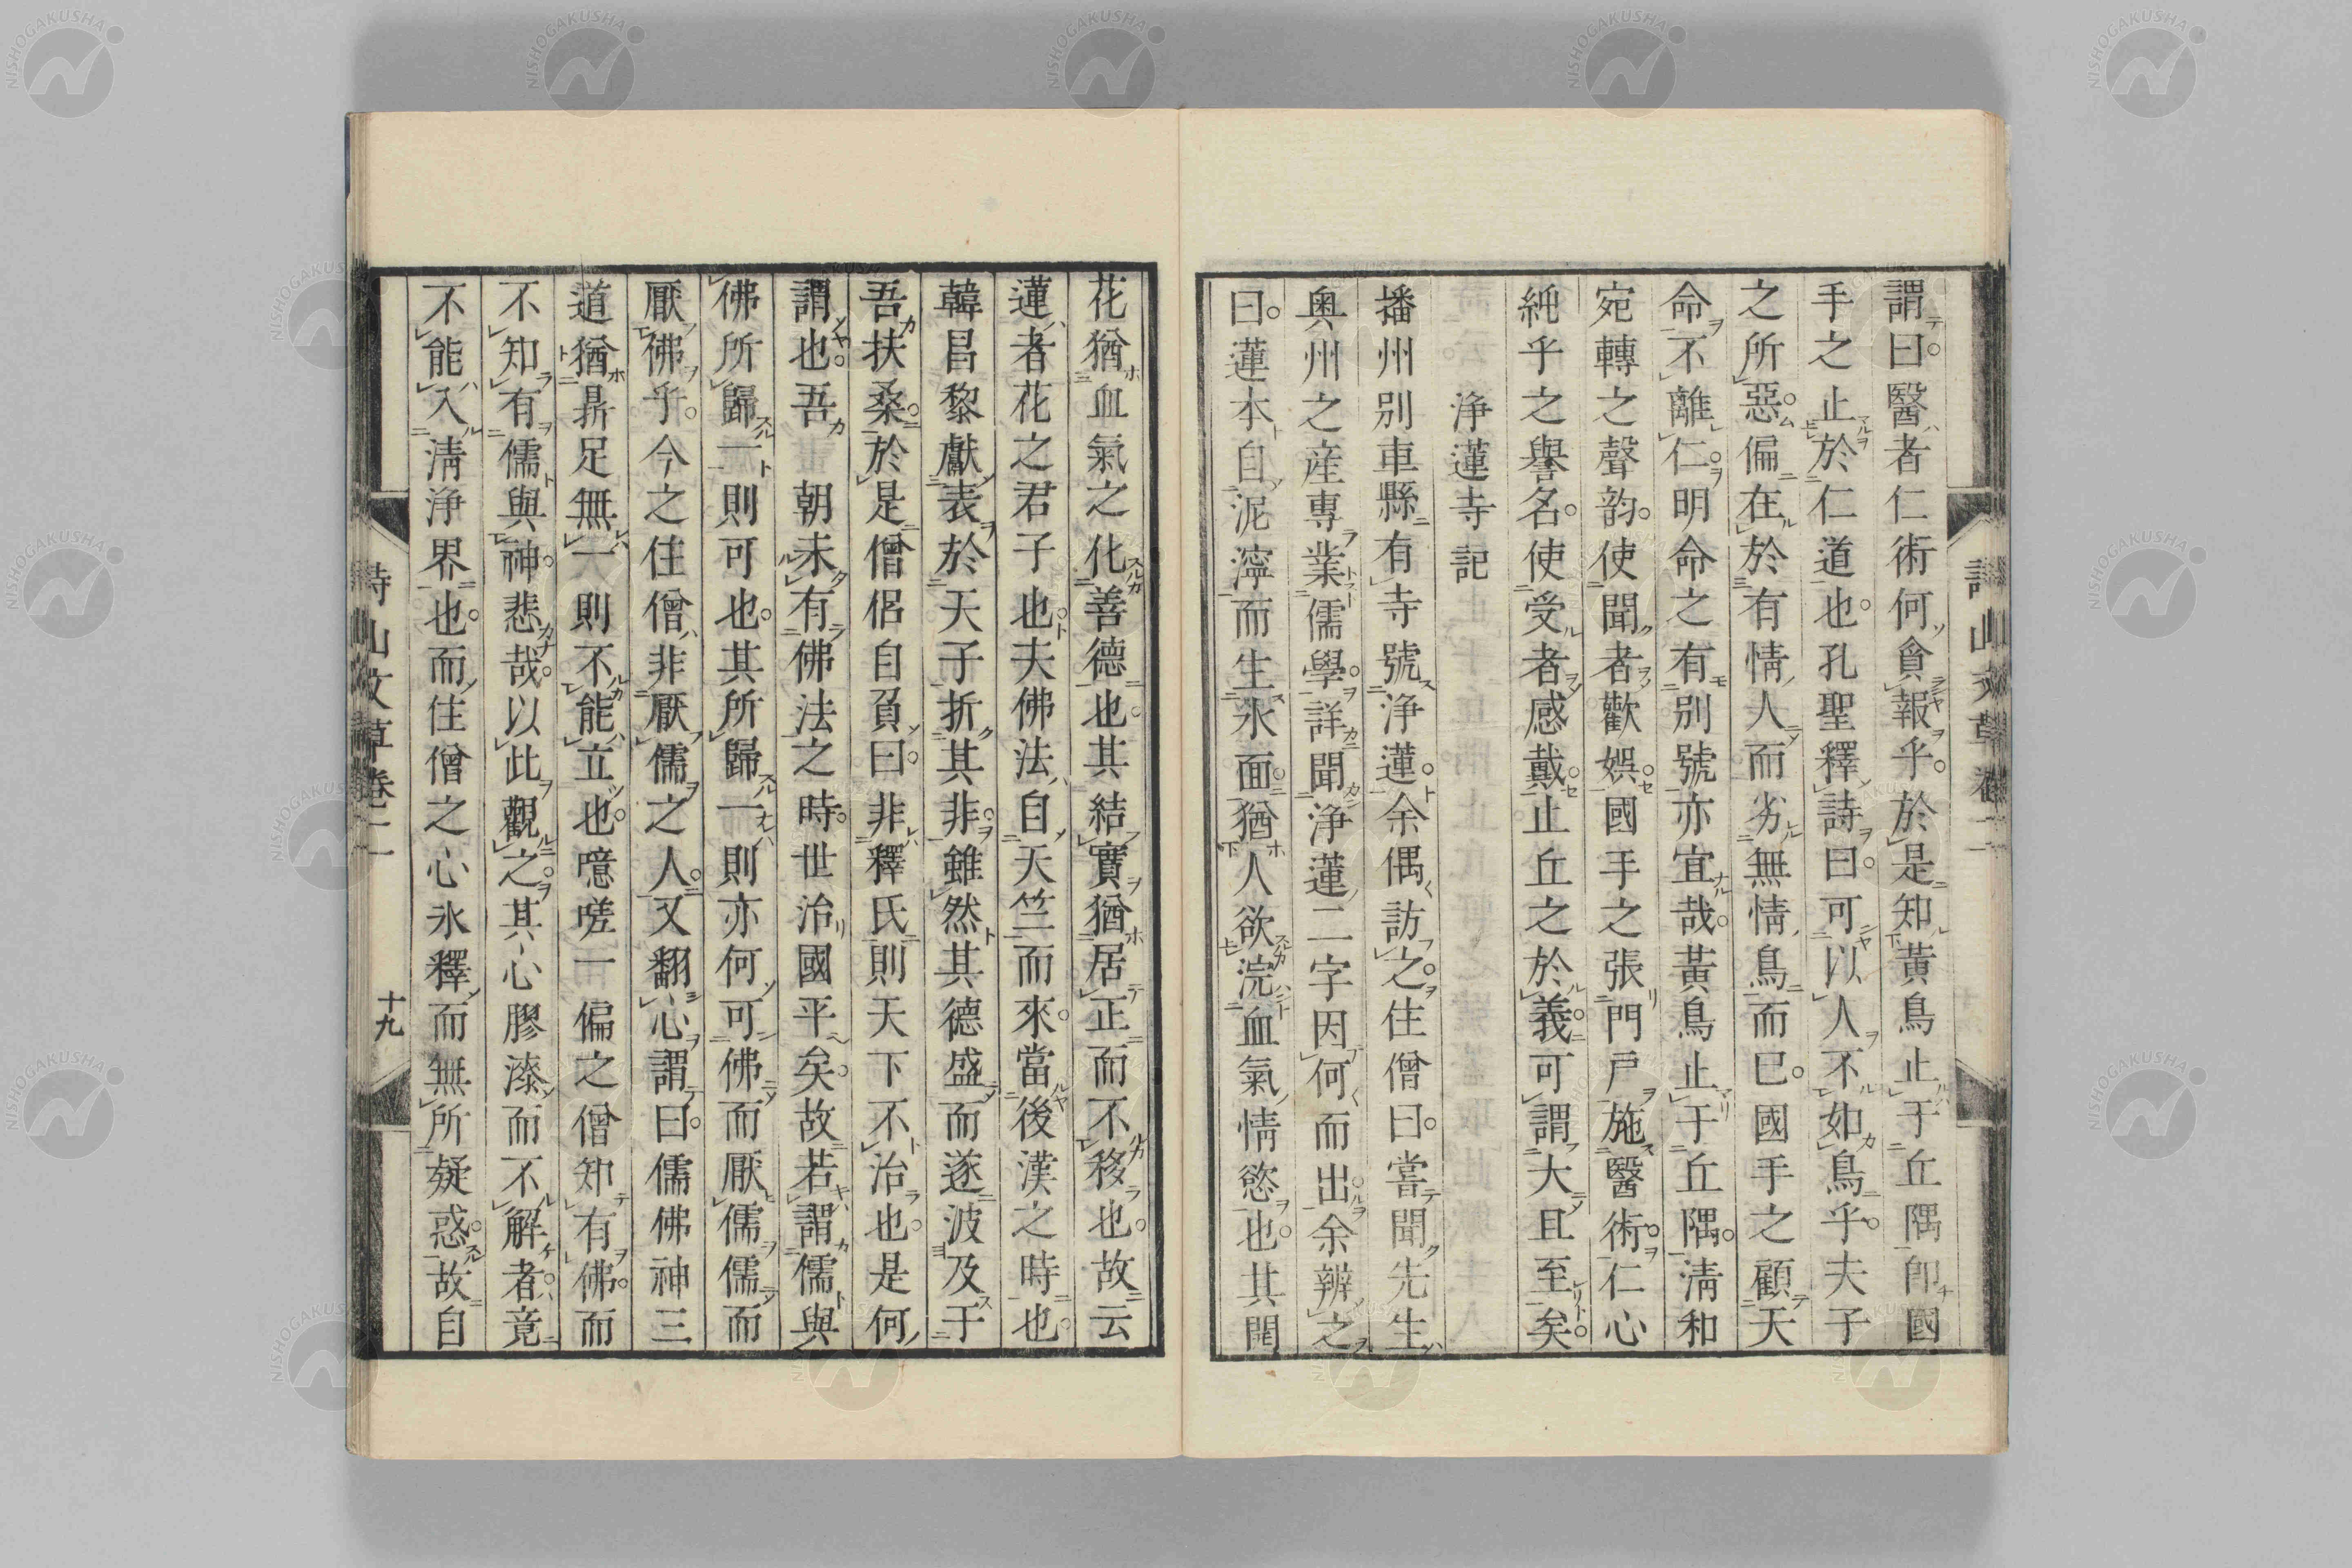 謂曰醫者仁術何貪報乎於是知黃鳥止于丘隅卽國
手之止於仁道也孔聖釋詩曰可以人不如鳥乎夫子
之所惡偏在於有情人而劣無情鳥而已國手之顧天
命不離仁明命之有別號亦宜哉黃鳥止于丘隅淸和
宛轉之聲韵使聞者歡娛國手之張門戶施醫術仁心
純乎之譽名使受者感戴止丘之於義可謂大且至矣
淨蓮寺記
播州別車縣有寺號淨蓮余偶訪之住僧曰嘗聞先生
奧州之産專業儒學詳聞淨蓮二字因何而出余辨之
曰蓮本自泥濘而生氷面猶人欲浣血氣情慾也其開
花猶血氣之化善德也其結實猶居正而不移也故云
蓮者花之君子也夫佛法自天竺而來當後漢之時也
韓昌黎獻表於天子折其非雖然其德盛而遂波及于
吾扶桑於是僧侶自負曰非釋氏則天下不治也是何
謂也吾 朝未有佛法之時世治國平矣故若謂儒與
佛所歸一則可也其所歸一則亦何可佛而厭儒儒而
厭佛乎今之住僧非厭儒之人又翻心謂曰儒佛神三
道猶鼎足無一則不能立也噫嗟一偏之僧知有佛而
不知有儒與神悲哉以此觀之其心膠漆而不解者竟
不能入淸淨界也而住僧之心氷釋而無所疑惑故自
詩山文草卷二
十九